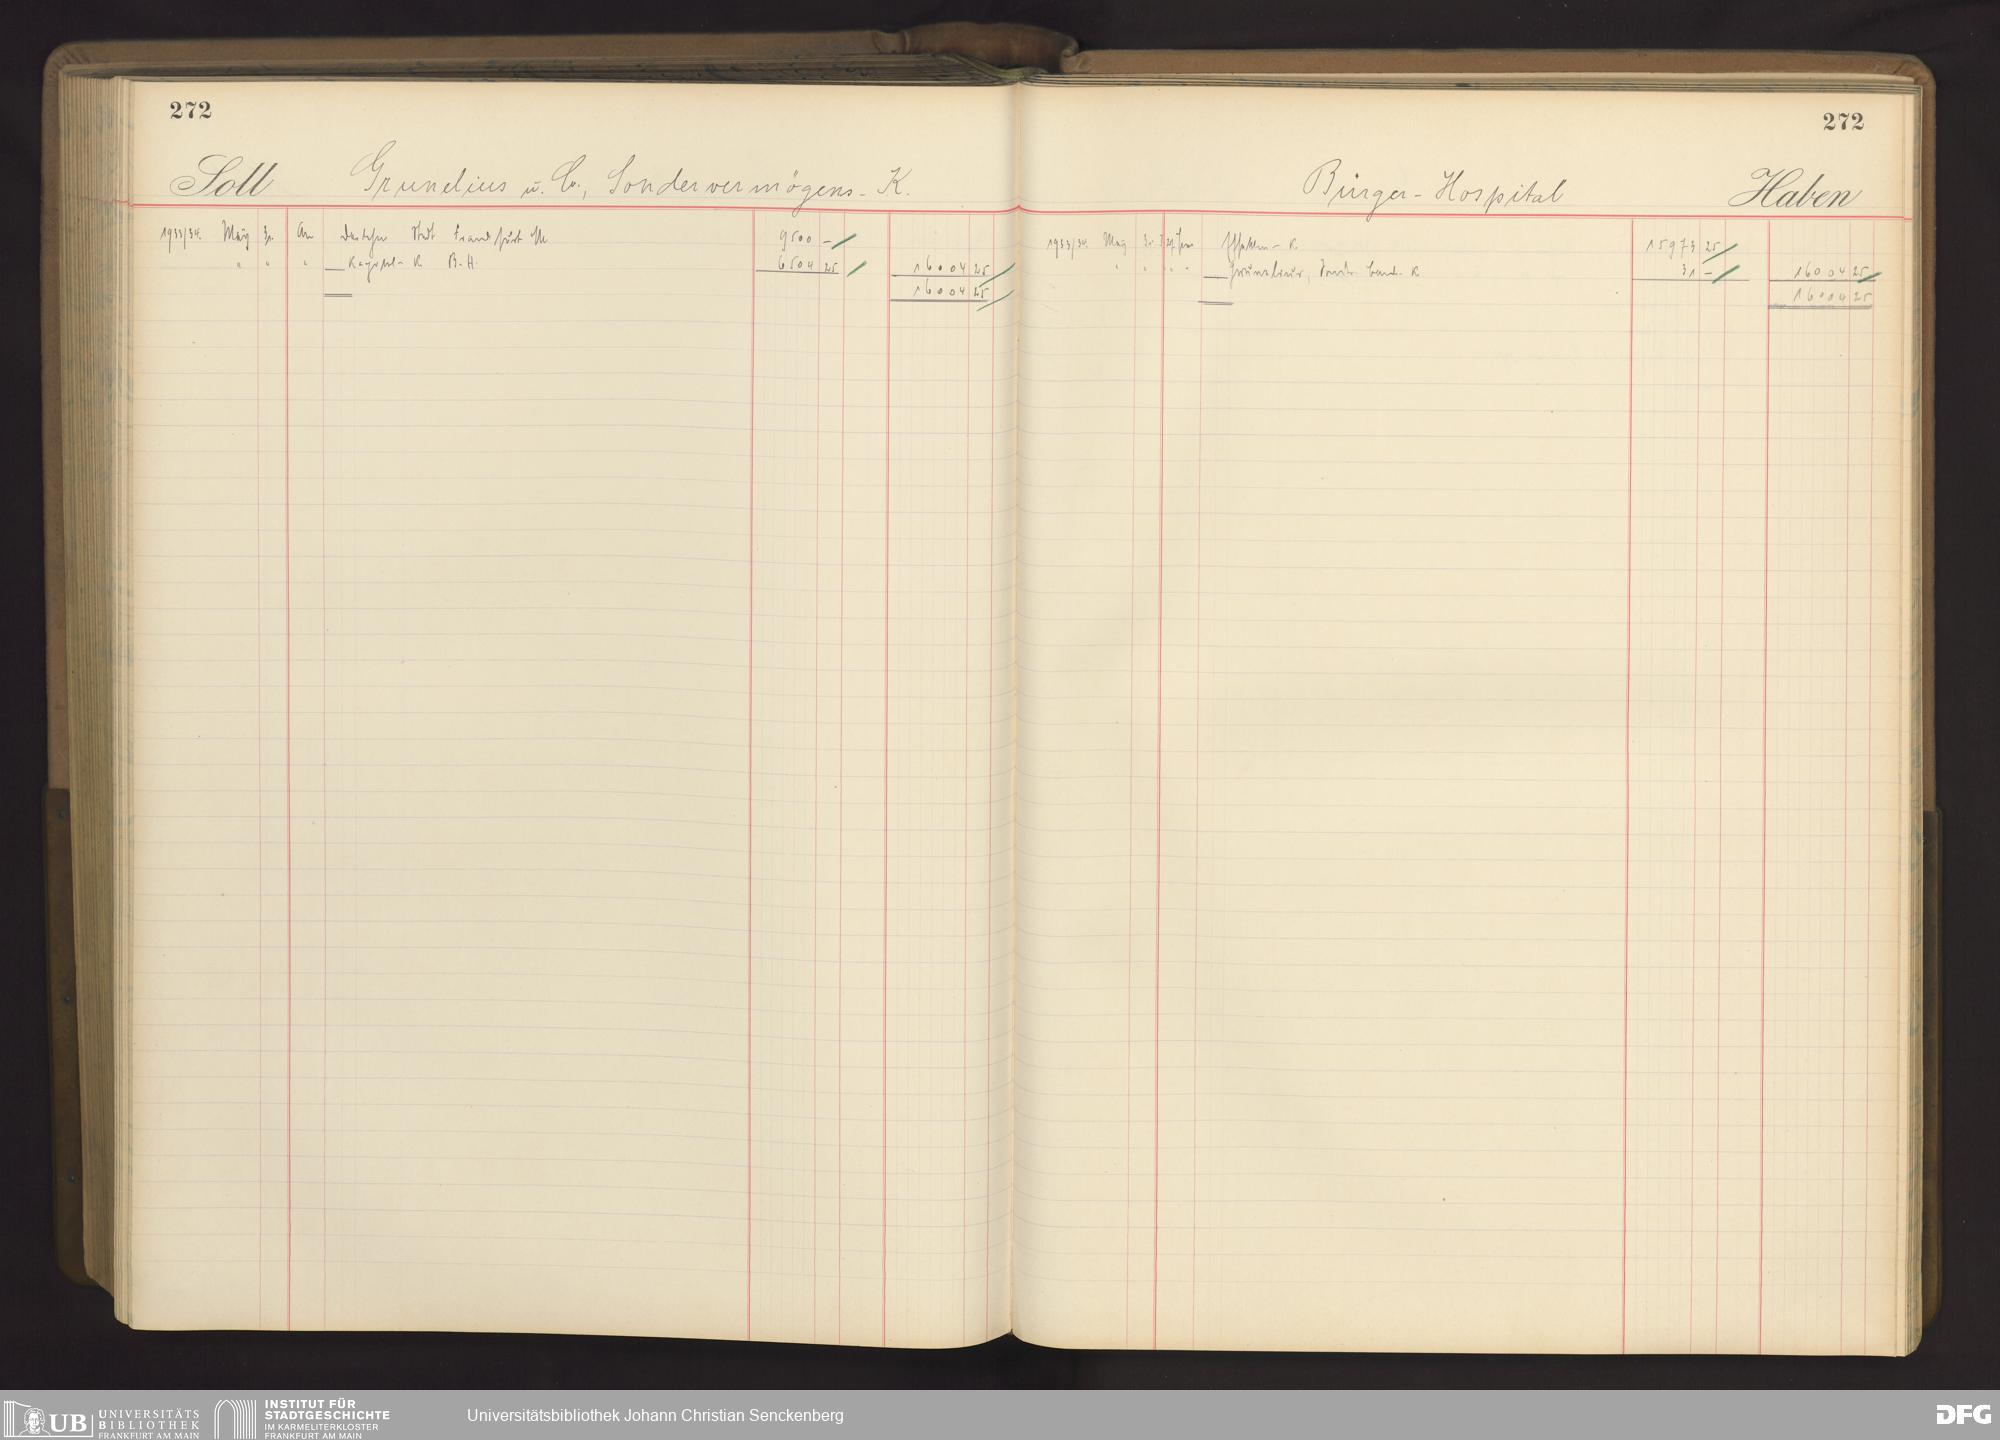 272
Soll Grunelius u. Co., Sondervermögens-K.
1933/34. März 31. An Darlehn Stadt Frankfurt M. 9500 –
" " " Kapital-K. B.H. 6504 25 16004 25
16004 25
272
Bürger-Hospital Haben
1933/34. März 31. Effekten-K. 15973 25
" " Grunelius, K. 31 – 16004 25
16004 25
UB UNIVERSITÄTS
BIBLIOTHEK
FRANKFURT AM MAIN
INSTITUT FÜR
STADTGESCHICHTE
IM KARMELITERKLOSTER
FRANKFURT AM MAIN
Universitätsbibliothek Johann Christian Senckenberg
DFG